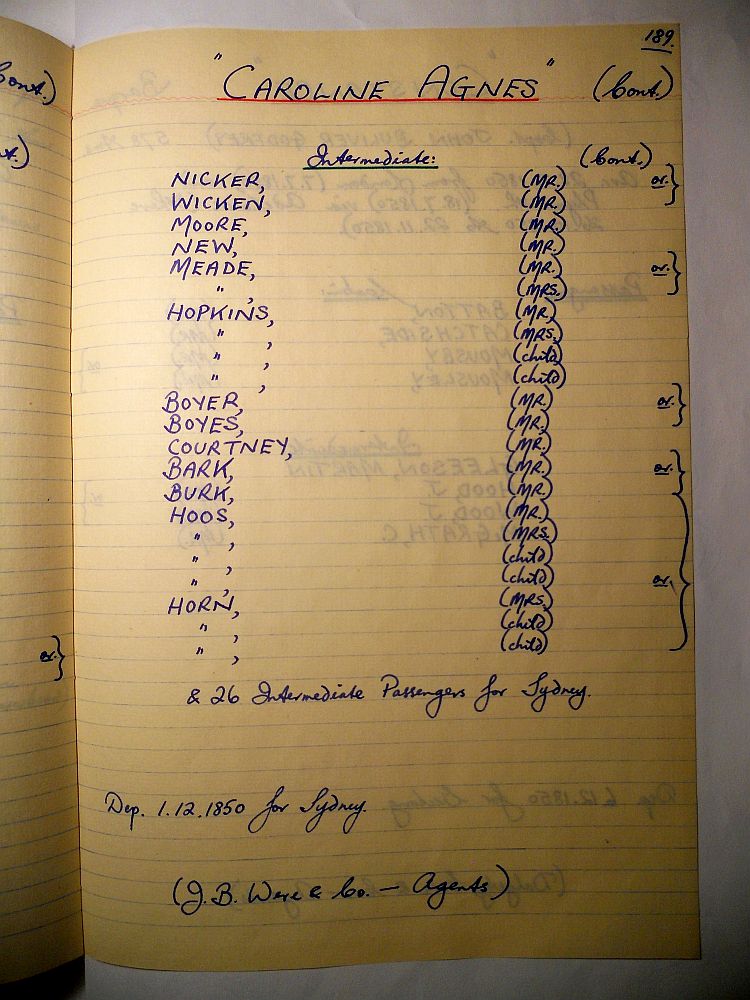 189.
"CAROLINE AGNES" (Cont.)
Intermediate: (Cont.)
NICKER, (MR.) or.
WICKEN, (MR.)
MOORE, (MR.)
NEW, (MR.)
MEADE, (MR.) or.
" , (MRS.)
HOPKINS, (MR.)
" , (MRS.)
" , (child)
" , (child)
BOYER, (MR.) or.
BOYES, (MR.)
COURTNEY, (MR.)
BARK, (MR.) or.
BURK, (MR.)
HOOS, (MR.)
" , (MRS.)
" , (child)
" , (child) or.
HORN, (MRS.)
" , (child)
" , (child)
& 26 Intermediate Passengers for Sydney.
Dep. 1.12.1850 for Sydney.
(J.B. Were & Co. — Agents)